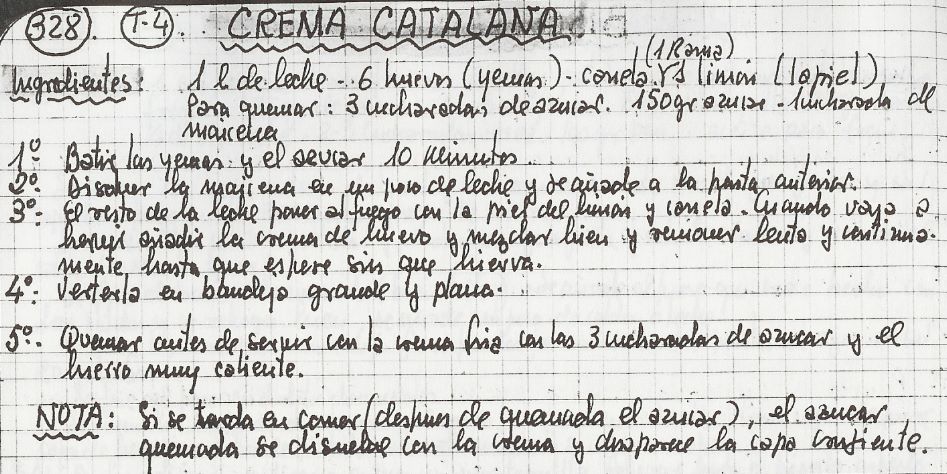 328. T-4. CREMA CATALANA
(1 Rama)
Ingredientes: 1 l de leche - 6 huevos (yemas) - canela y 1 limón (la piel)
Para quemar: 3 cucharadas de azucar. 150gr azucar - 1 cucharada de
maicena
1º: Batir las yemas y el azucar 10 Minutos.
2º: Disolver la maicena en un poco de leche y se añade a la pasta anterior.
3º: El resto de la leche poner al fuego con la piel del limón y canela. Cuando vaya a
hervir añadir la crema de huevo y mezclar bien y remover lento y continua-
mente, hasta que espese sin que hierva.
4º: Verterla en bandeja grande y plana.
5º: Quemar antes de servir con la crema fria con las 3 cucharadas de azucar y el
hierro muy caliente.
NOTA: Si se tarda en comer (despues de quemada el azucar), el azucar
quemada se disuelve con la crema y desaparece la capa crujiente.